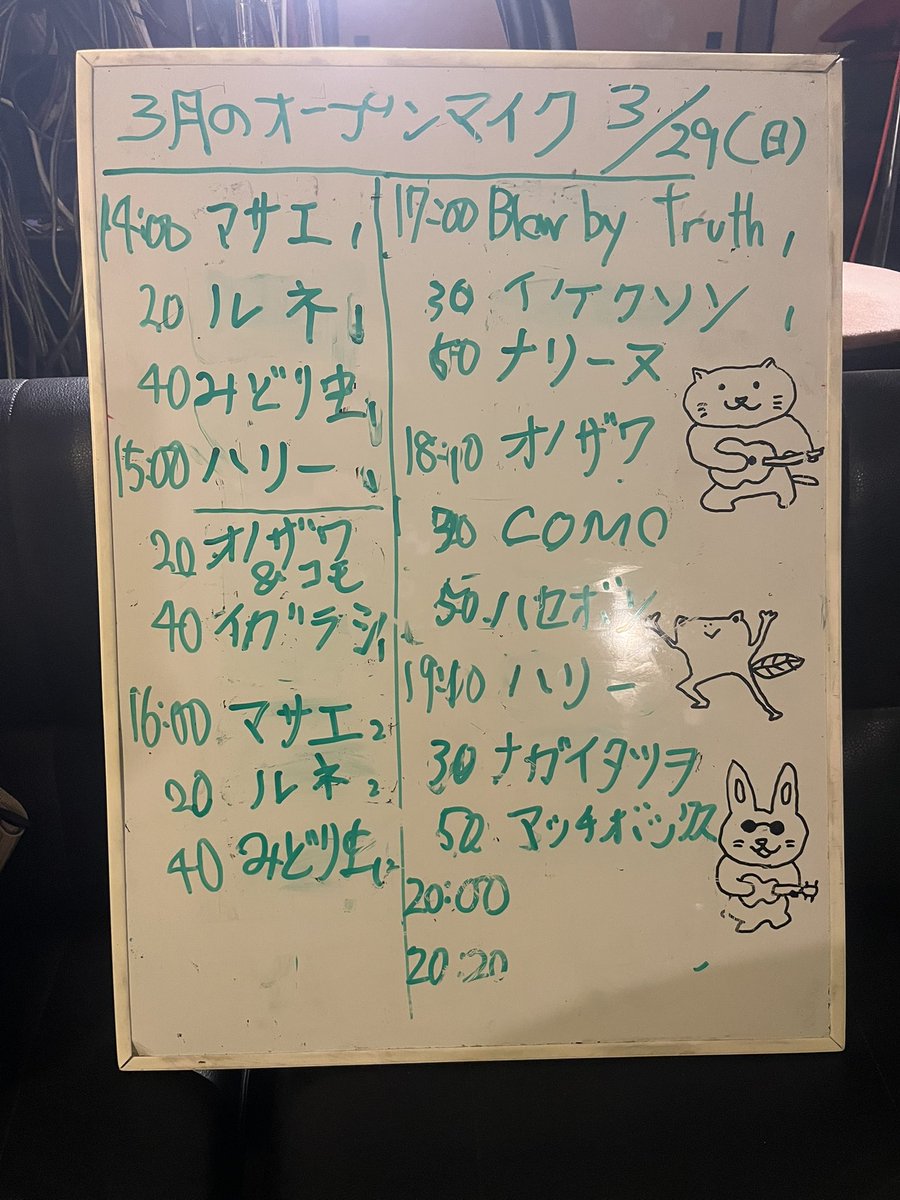 3月のオープンマイク 3/29(日)
14:00 マサエ1
20 ルネ1
40 みどり虫1
15:00 ハリー1
20 オノザワ
&コモ
40 イガラシ1
16:00 マサエ2
20 ルネ2
40 みどり虫2
17:00 Blow by Truth 1
30 イノイクソン 1
50 ナリーヌ
18:10 オノザワ
30 COMO
50 ハセボン
19:10 ハリー
30 ナガイタツヲ
50 マッチボックス
20:00
20:20